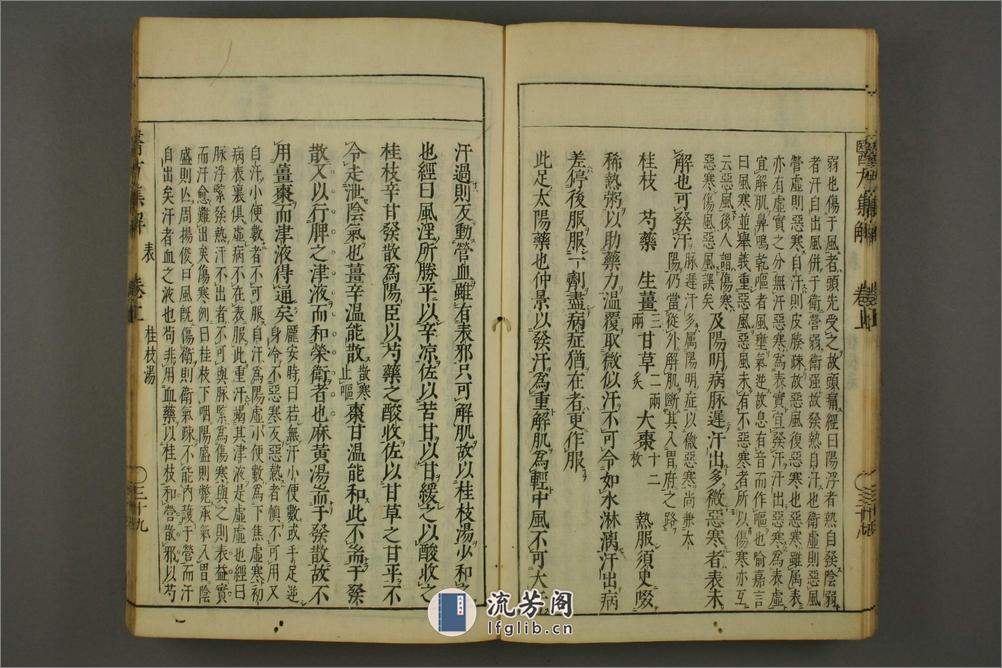 弱也傷于風者頭先受之故頭痛經曰陽浮者熱自發陰弱
者汗自出風併于衛營弱衛强故發熱自汗也衛虛則惡風
營虛則惡寒自汗則皮腠疎故惡風復惡寒也惡寒雖属表
亦有虛實之分無汗惡寒為表實宜發汗汗出惡寒為表虛
宜解肌鼻鳴乾嘔者風壅氣逆故息有音而作嘔也喻嘉言
曰風寒並舉義重惡風惡風未有不惡寒者所以傷寒亦互
云惡寒傷風惡風誤矣
惡寒惡風後人謂傷寒
及陽明病脉遲汗出多微惡寒者表未
解也可發汗
脉遲汗多属陽明症以微惡寒尚兼太
陽仍當從外解肌斷其入胃府之路
桂枝 芍藥 生薑三兩 甘草二兩炙 大棗十二枚 熱服須臾啜
稀熱粥以助藥力温覆取微似汗不可令如水淋漓汗出病
差停後服服一劑盡病症猶在者更作服
此足太陽藥也仲景以發汗為重解肌為輕中風不可大
汗過則反動營血雖有表邪只可解肌故以桂枝湯少和之
也經曰風淫所勝平以辛凉佐以苦甘以甘緩之以酸收之
桂枝辛甘發散為陽臣以芍藥之酸收佐以甘草之甘平不
令走泄陰氣也薑辛温能散
散寒止嘔
棗甘温能和此不耑于發
散又以行脾之津液而和榮衛者也麻黄湯耑于發散故不
用薑棗而津液得通矣
龐安時曰若無汗小便數或手足逆
身令不惡寒反惡熱者慎不可用又
自汗小便數者不可服自汗為陽虛小便數為下焦虛寒初
病表裏俱虛病不在表服此重汗竭其津液是虛虛也經曰
脉浮緊發熱汗不出者不可與脉緊為傷寒與之則表益實
而汗愈難出矣傷寒例曰桂枝下咽陽盛則斃承氣入胃陰
盛則亾周揚俊曰風既傷衛則衛氣疎不能内護于營而汗
自出矣汗者血之液也苟非用血藥以桂枝和營散邪以芍
醫方集解 表 卷上 桂枝湯 三十九
醫方集解 卷上
流芳阁
lfglib.cn